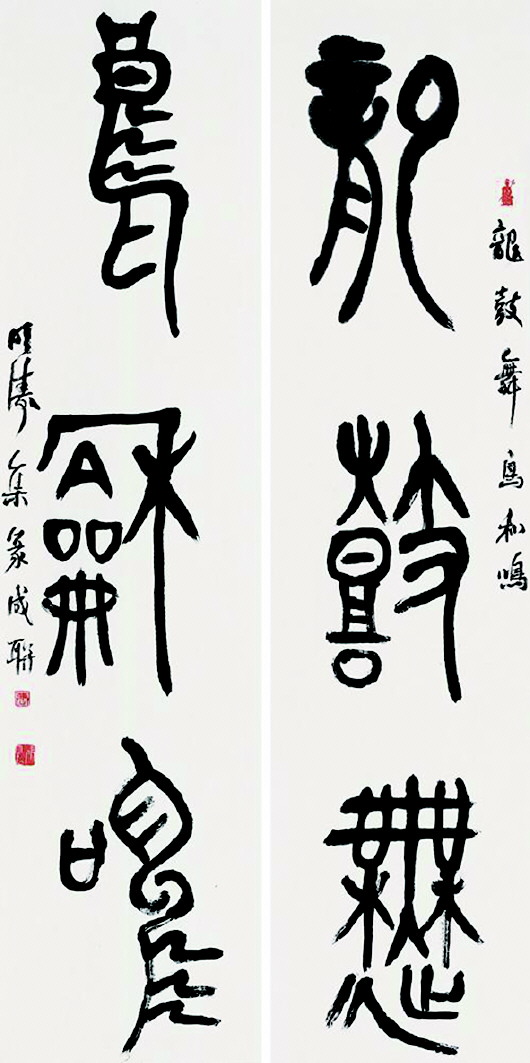 龍鼓舞鳥和鳴
龍鼓舞
鳥龢鳴
集篆成聯